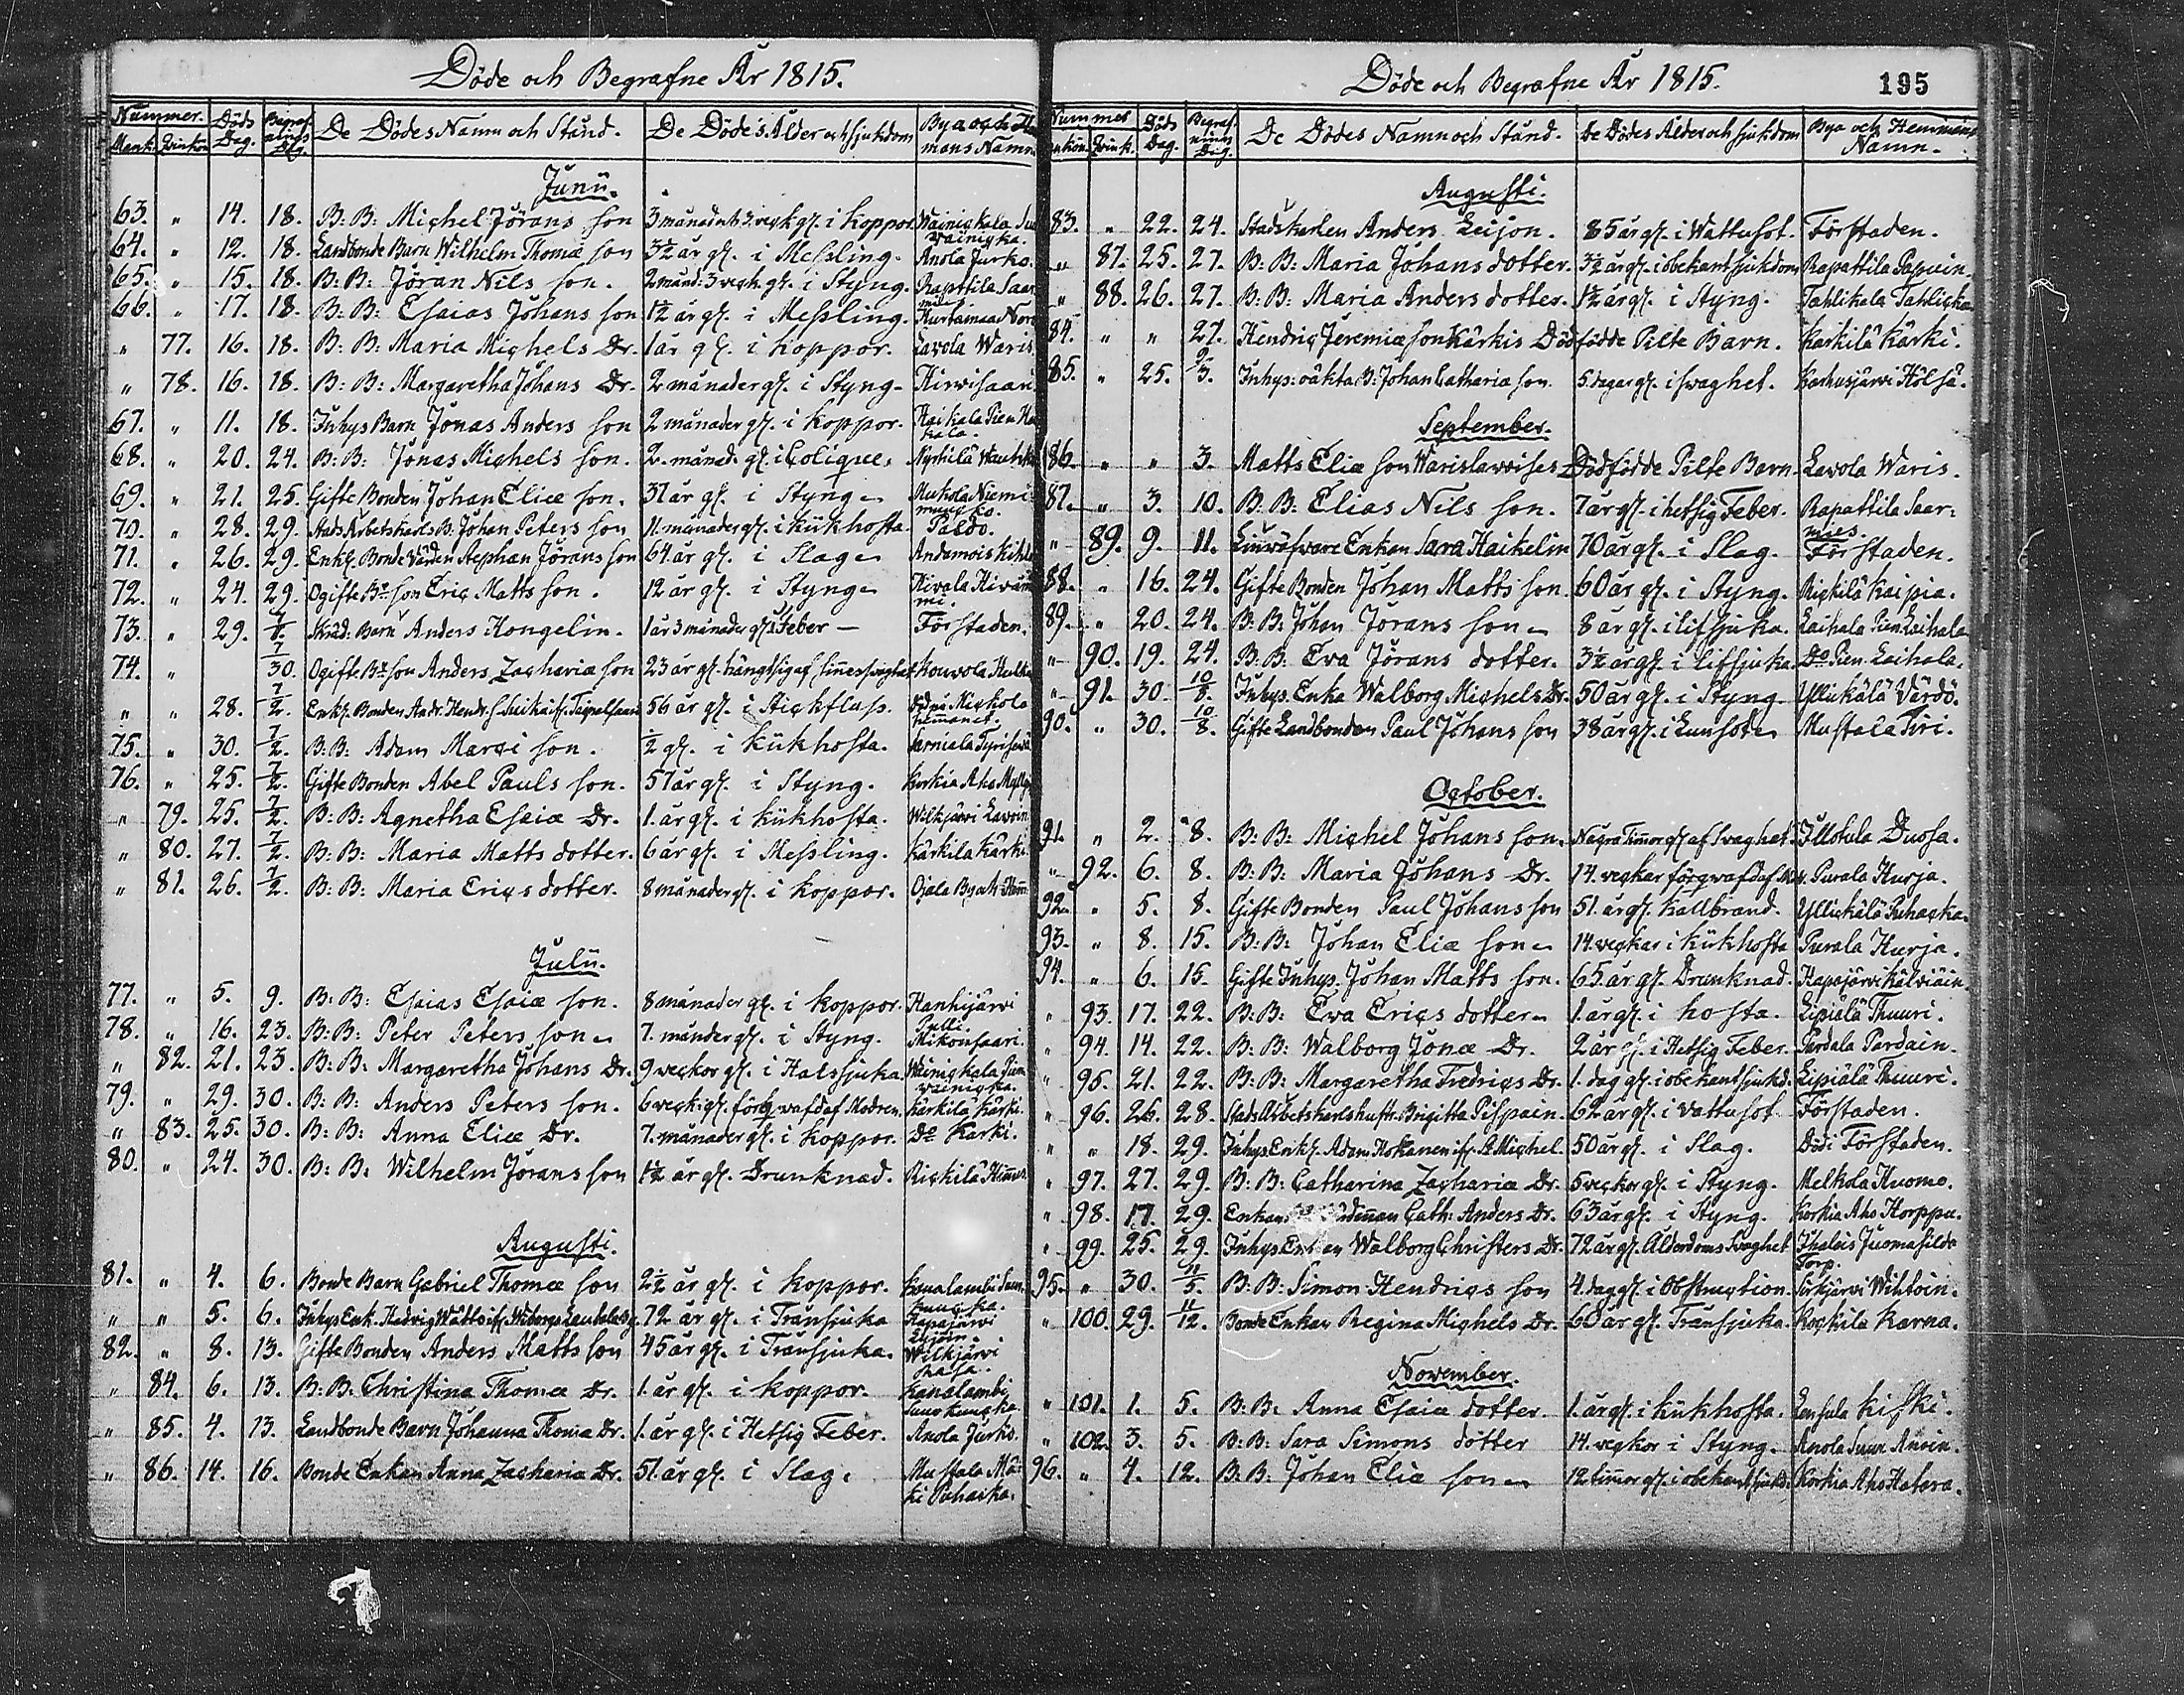 Döde och Begrafne År 1815.
Nummer. Döds Dag. Begrafnings Dag. De Dödes Namn och Stånd. De Dödes Ålder och sjukdom By och Hemmans Namn
Mank. Qvinkön
Junii.
63. " 14. 18. B: B: Michel Jörans son 3 månad och 3 veck gl. i koppor Wainickala Suur
wainicka.
64. " 12. 18. Landbonde Barn Wilhelm Thomæ son 3½ år gl. i Messling. Anola Jurko.
65. " 15. 18. B: B: Jöran Nils son. 2 månd. 3 veck gl. i Styng. Rapattila Saar
mies.
66. " 17. 18. B: B: Esaias Johans son 1½ år gl. i Messling. Hurtamaa
" 77. 16. 18. B: B: Maria Michels Dr. 1 år gl. i koppor. Lavola Waris
" 78. 16. 18. B: B: Margaretha Johans Dr. 2 månader gl. i Styng. Hirvisaari
67. " 11. 18. Inhys Barn Jonas Anders son 2 månader gl. i koppor. Haikala Pien Hai
kala.
68. " 20. 24. B: B: Jonas Michels son. 2. månad. gl. i Colique.
69. " 21. 25. Gifte Bonden Johan Eliæ son. 37 år gl. i Styng Muhola Niemi
70. " 28. 29. Stads Arbetskarls B. Johan Peters son 11. månader gl. i kükhosta
71. " 26. 29. Enkl. Bonde Stephan Jörans son 64 år gl. i Slag
72. " 24. 29. Ogifte Be son Eric Matts son. 12 år gl. i Styng
mi.
73. " 29. 7/ Skräd: Barn Anders Hongelin. 1 år 3 månader gl. i Feber — Förstaden.
74. " 7/30. Ogifte Be son Anders Zachariæ son 23 år gl. hängt sig af sinnes svaghet Kouvola
" " 28. 7/2. Enkl. Bonden And: Hendr: S. Suikai fr. Taipalsaari 56 år gl. i Stickfluss.
hemmanet.
75. " 30. 7/2. B: B: Adam Marci son. ½ gl. i kükhosta.
76. " 25. 7/2. Gifte Bonden Abel Pauls son. 57 år gl. i Styng. Korkia Aho
" 79. 25. 7/2. B: B: Agnetha Esaiæ Dr. 1. år gl. i kükhosta. Wilkjärvi
" 80. 27. 7/2. B: B: Maria Matts dotter. 6 år gl. i Messling. Kärkilä Kärki
" 81. 26. 7/2. B: B: Maria Erics dotter. 8 månader gl. i koppor. Ojala By och Hem
Julii.
77. " 5. 9. B: B: Esaias Esaiæ son. 8 månader gl. i koppor. Hanhijärvi
78. " 16. 23. B: B: Peter Peters son 7. månder gl. i Styng. Mikonsaari.
" 82. 21. 23. B: B: Margaretha Johans Dr. 9 veckor gl. i Halssjuka. Wainickala
wainicka.
79. " 29. 30. B: B: Anders Peters son. 6 veck gl. förqvafd af Modren. Kärkilä Kärki.
" 83. 25. 30. B: B: Anna Eliæ Dr. 7. månader gl. i koppor. Do Kärki.
80. " 24. 30. B: B: Wilhelm Jörans son 1½ år gl. Drunknad. Rickilä
Augusti.
81. " 4. 6. Bonde Barn Gabriel Thomæ son 2½ år gl. i koppor. Kanalambi
" " 5. 6. Inhys Enk. Hedvig 72 år gl. i Transjuka Hapajärvi
82. " 8. 13. Gifte Bonden Anders Matts son 45 år gl. i Transjuka. Wilkjärvi
Rasa.
" 84. 6. 13. B: B: Christina Thomæ Dr. 1. år gl. i koppor. Kanalambi
" 85. 4. 13. Landbonde Barn Johanna Thomæ Dr. 1. år gl. i Hetsig Feber. Anola Jurko.
" 86. 14. 16. Bonde Enkan Anna Zachariæ Dr. 51. år gl. i Slag. Mustala Mä
ki Puhaka.
Döde och Begrafne År 1815.
195
Nummer Döds Dag. Begrafnings Dag. De Dödes Namn och Stånd. De Dödes Ålder och sjukdom Bya och Hemmans Namn.
Augusti.
83. " 22. 24. Stadskarlen Anders Leijon. 85 år gl. i Wattusot. Förstaden.
" 87. 25. 27. B: B: Maria Johans dotter. 3½ år gl. i obekant sjukdom Rapattila Papuin
" 88. 26. 27. B: B: Maria Anders dotter. 1½ år gl. i Styng. Tahlikala Tahlicka
84. " " 27. Hendric Jeremiæ son Kärkis Dödfödde Pilte Barn. Karkilä Kärki.
85. " 25. 9/3. Inhys: oäkta B: Johan Catharia son. 5. dagar gl. i svaghet. Karhusjärvi Hölsä.
September.
86. " " 3. Matts Eliæ son Waris Dödfödde Pilte Barn Lavola Waris.
87. " 3. 10. B: B: Elias Nils son. 7 år gl. i hetsig Feber. Rapattila Saar=
mies.
" 89. 9. 11. Linväfvare Enkan Sara Haikelin 70 år gl. i Slag. Förstaden.
88. " 16. 24. Gifte Bonden Johan Matts son 60 år gl. i Styng. Rickilä Kaipia.
89. " 20. 24. B: B: Johan Jörans son 8 år gl. i lifsjuka. Laihala Pien Laihala
" 90. 19. 24. B: B: Eva Jörans dotter. 3½ år gl. i lifsjuka. Do Pien Laihala.
" 91. 30 10/8. Inhys. Enka Walborg Michels Dr. 50 år gl. i Styng Yllikälä Värdö.
90. " 30. 10/8. Gifte Landbonden Paul Johans son 38 år gl. i Lunsot Mustala Piri.
October.
91. " 2. 8. B: B: Michel Johans son. Några Timor gl. af Svaghet Illotula Duosa.
" 92. 6. 8. B: B: Maria Johans Dr. 14. veckar förqvafd af Purala Hurja.
92. " 5. 8. Gifte Bonden Paul Johans son 51. år gl. Kallbrand. Yllickälä Puhacka.
93. " 8. 15. B: B: Johan Eliæ son 14. veckar i kükhosta Purala Hurja.
94. " 6. 15. Gifte Inhys. Johan Matts son. 65. år gl. Drunknad. Hapajärvi Kälviäin.
" 93. 17. 22. B: B: Eva Erics dotter 1. år gl. i hosta. Lipiälä Thuuri.
" 94. 14. 22. B: B: Walborg Jonæ Dr. 2 år gl. i Hetsig Feber. Pardala Pardain.
" 95. 21. 22. B: B: Margaretha Fredrics Dr. 1. dag gl. i obekant sjukd. Lipiälä Thuuri.
" 96. 26. 28. Stads Arbetskarls hustr. Brigitta Pispain. 62 år gl. i Vattusot Förstaden.
" " 18. 29. Inhys Enkl. Adam Hokanen ifr. St Michel. 50 år gl. i Slag. Död i Förstaden.
" 97. 27. 29. B: B: Catharina Zachariæ Dr. 5 veckor gl. i Styng. Melkola Huomo.
" 98. 17. 29. Enkan Cath: Anders Dr. 63 år gl. i Styng. Korkia Aho Horppu.
" 99. 25. 29. Inhys Enkan Walborg Christers Dr. 72 år gl. Ålderdoms Svaghet Ihalais Juomasilda
Torp.
95. " 30. 11/5. B: B: Simon Hendrics son 4. dag gl. i Obstruction. Sirkjärvi Wihtoin.
" 100. 29. 11/12. Bonde Enkan Regina Michels Dr. 60 år gl. Transjuka. Kockila Karna.
November.
" 101. 1. 5. B: B: Anna Esaiæ dotter 1. år gl. i kükhosta. Konsula Kiski.
" 102. 3. 5. B: B: Sara Simons dotter 14. veckor i Styng. Anola Suur Anoin.
96. " 4. 12. B: B: Johan Eliæ son 12 timmor gl. i obekant sjukd. Korkia Aho Hatara.